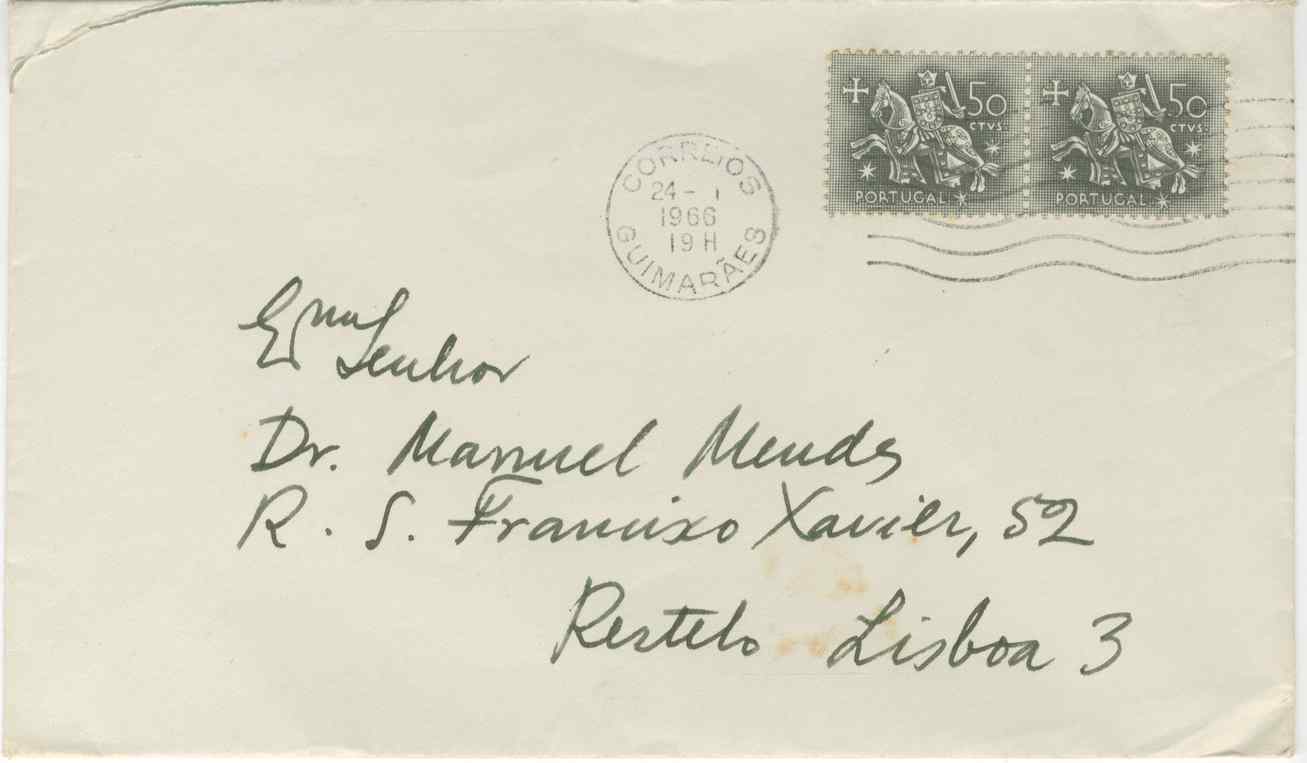 50 CTVS. PORTUGAL
50 CTVS. PORTUGAL
CORREIOS
24 - 1
1966
19 H
GUIMARÃES
Exmo
Senhor
Dr. Manuel Mendes
R. S. Francisco Xavier, 52
Restelo Lisboa 3